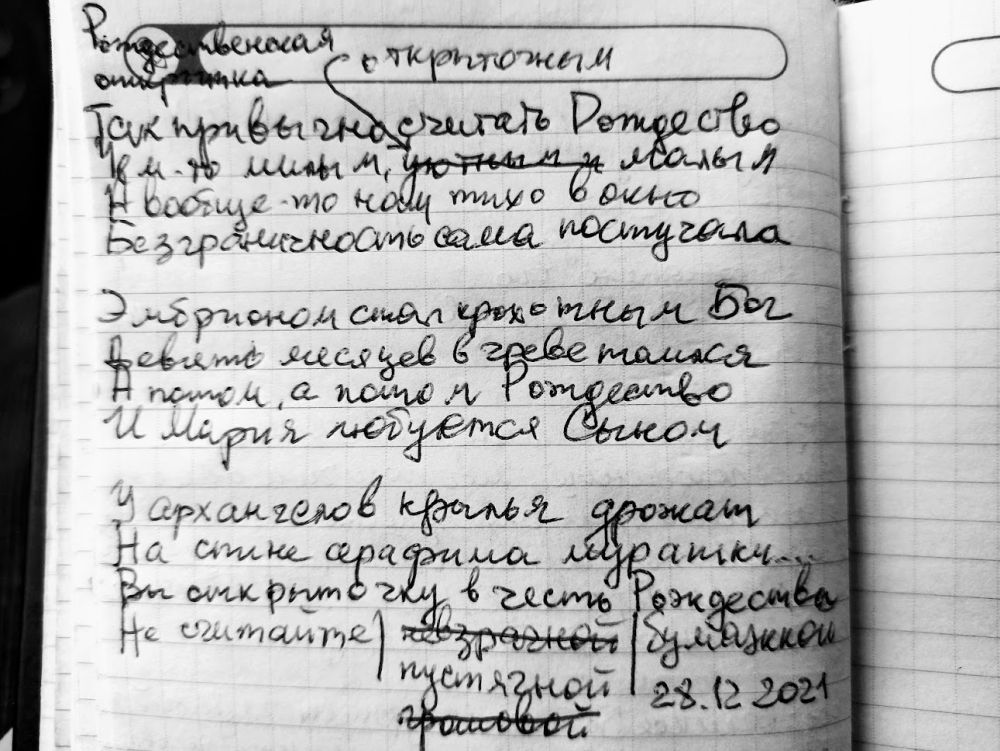 Рождественская
открытка
открыточным
Так привычно считать Рождество
Чем-то милым, уютным и малым
А вообще-то к нам тихо в окно
Безграничность сама постучала
Эмбрионом стал крохотным Бог
Девять месяцев в чреве томился
А потом, а потом Рождество
И Мария любуется Сыном
У архангелов крылья дрожат
На спине серафима мурашки...
Вы открыточку в честь Рождества
Не считайте невзрачной бумажкой
пустячной 28.12.2021
грошовой